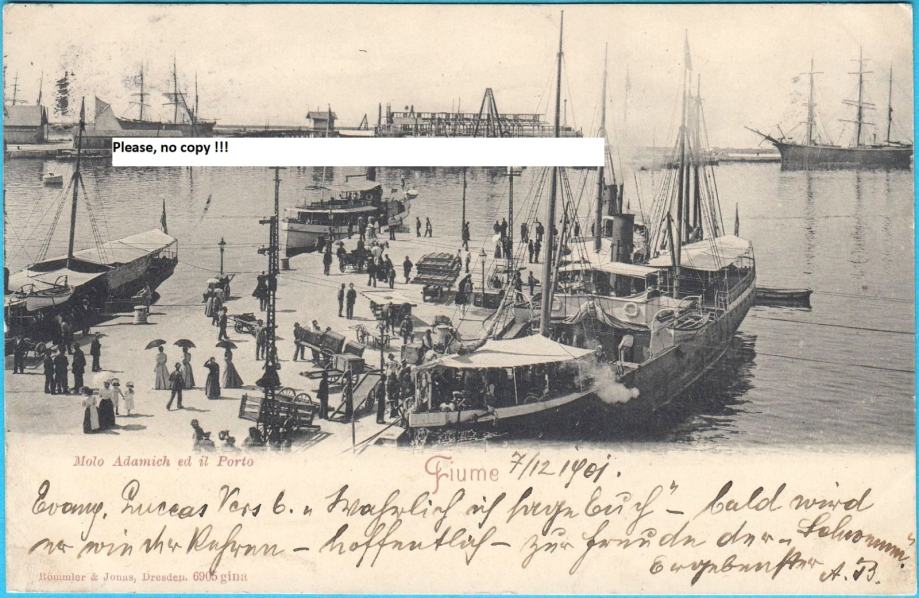 Please, no copy !!!
Molo Adamich ed il Porto
Fiume 7/12 1901.
Evang. Luccas Vers 6. „ Wahrlich ich sage Euch" – bald wird
er wiederkehren – hoffentlich – zur Freude der „
Ergebenster A. B.
Römmler & Jonas, Dresden. 6905 gina